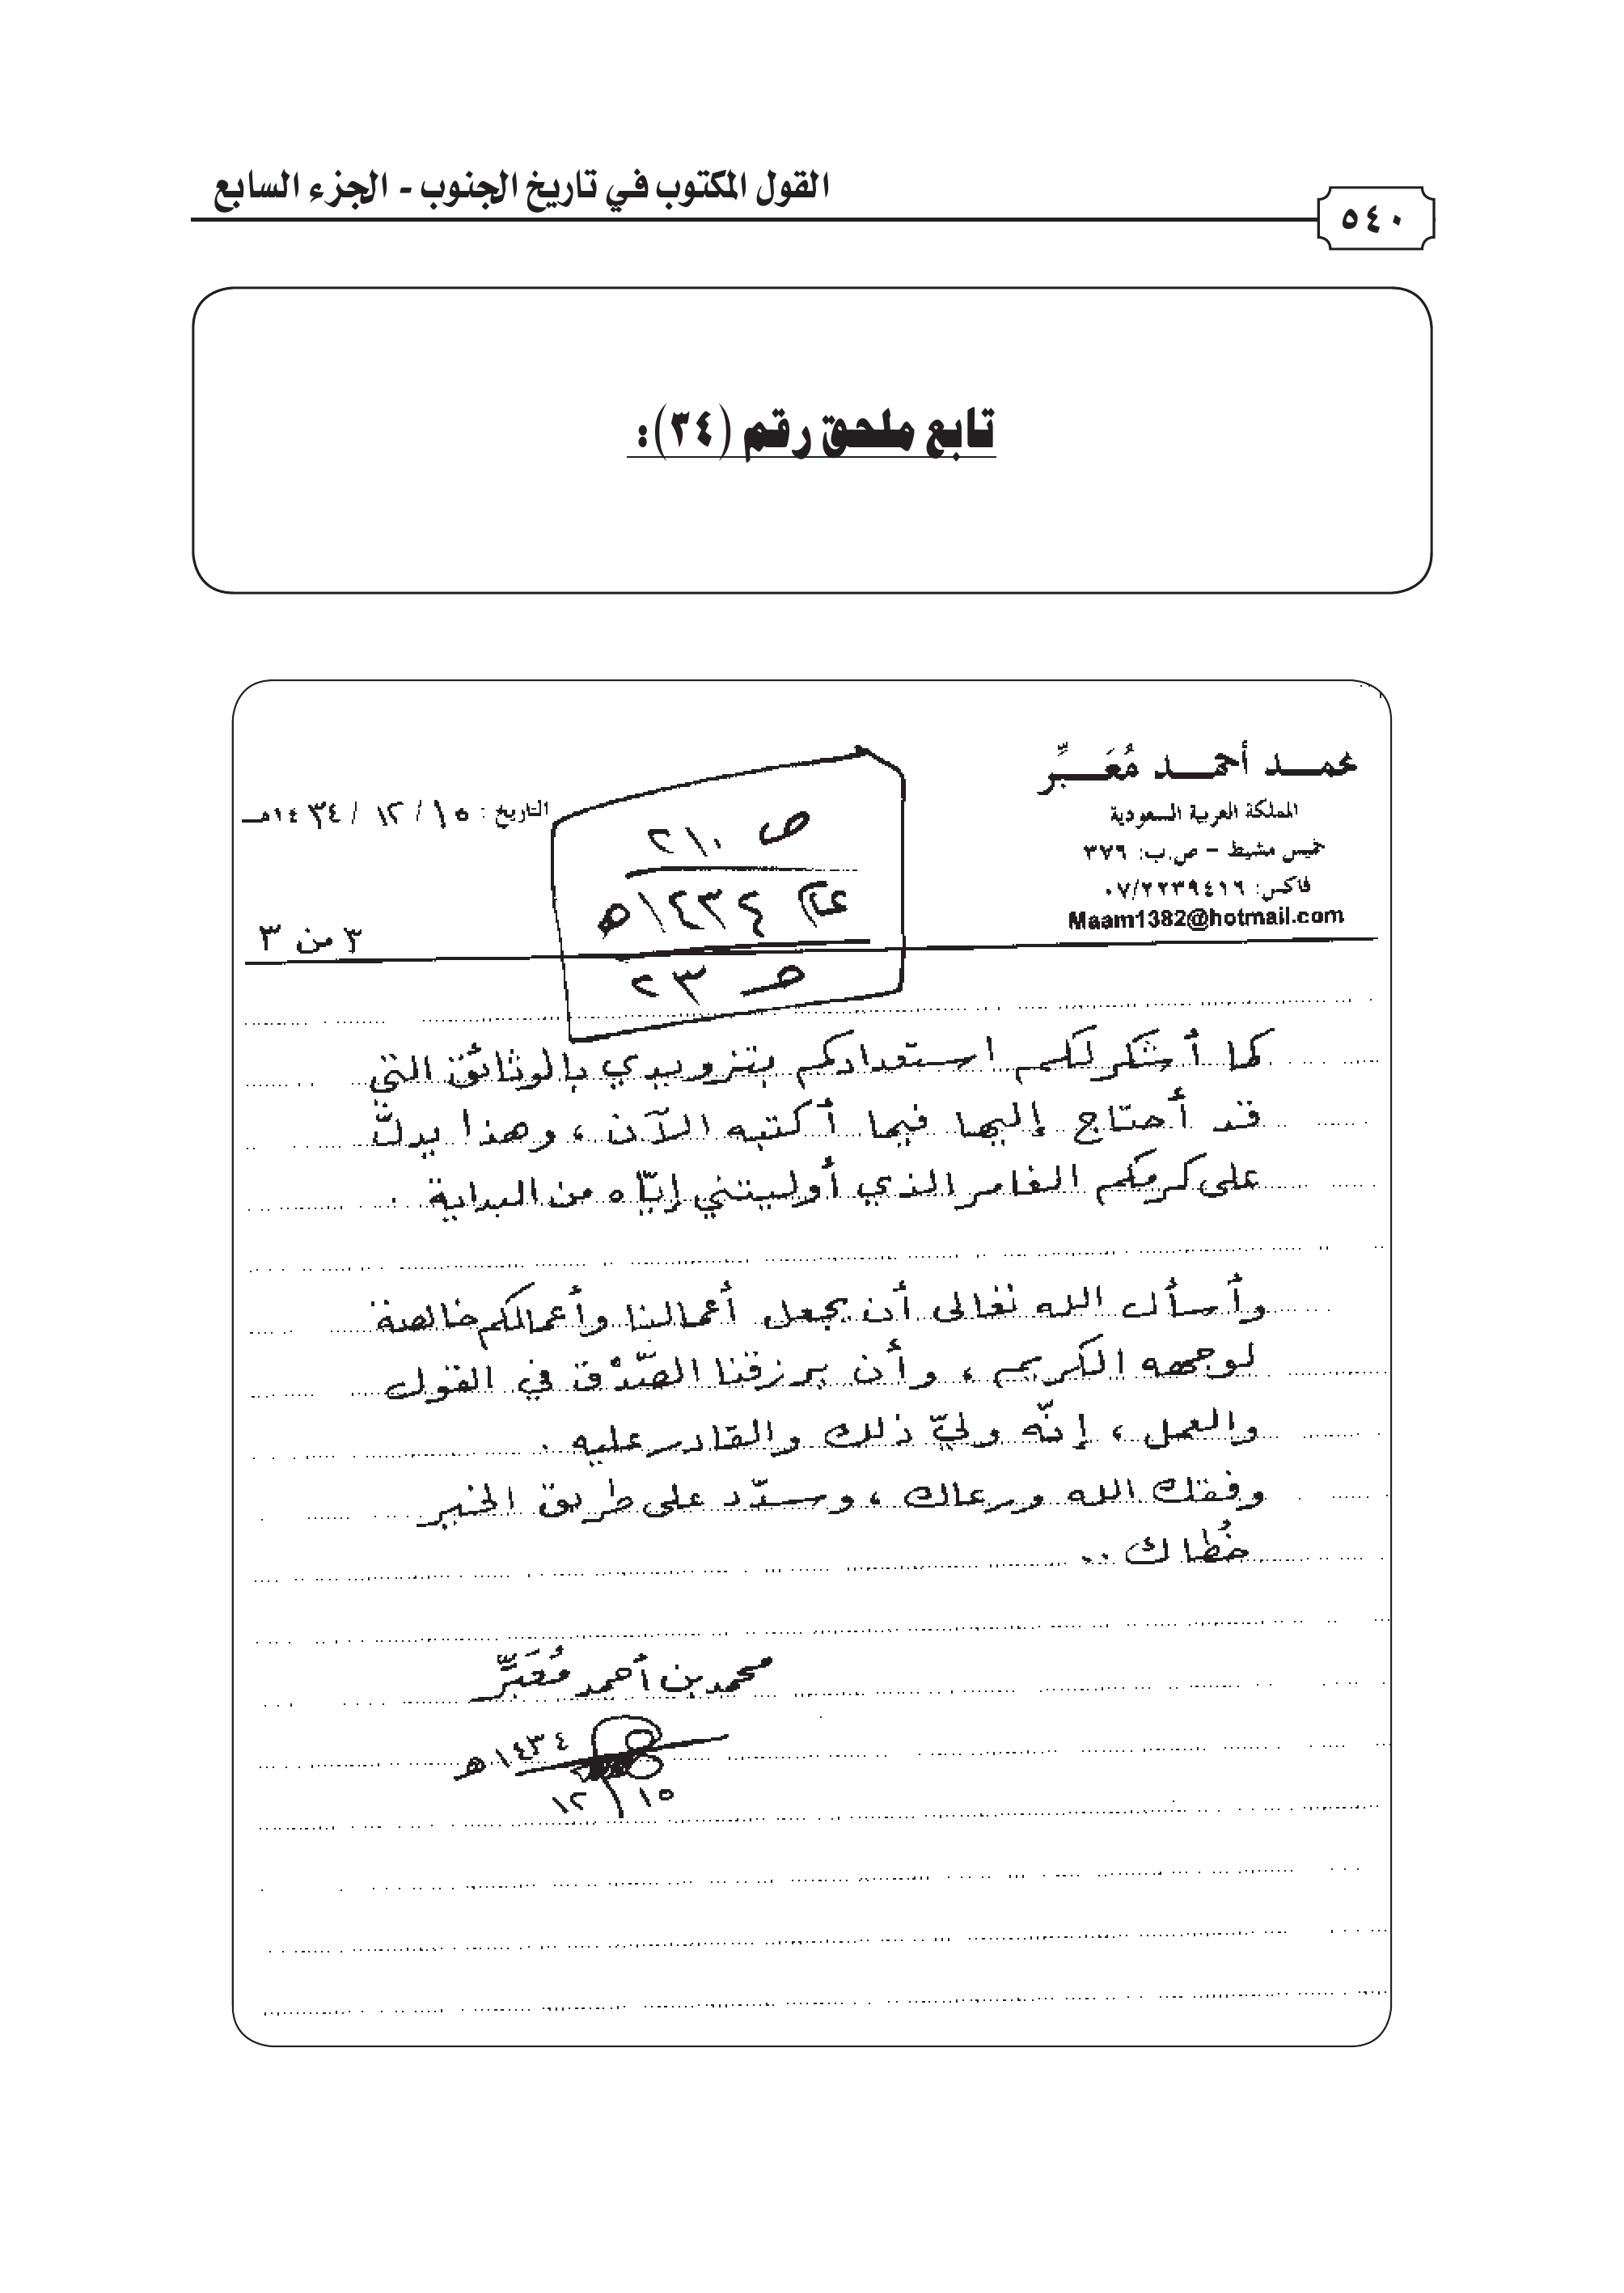 القول المكتوب في تاريخ الجنوب - الجزء السابع
٥٤٠
تابع ملحق رقم (٣٤):
محمد أحمد مُعَبِّر
المملكة العربية السعودية
خميس مشيط – ص.ب: ٣٧٩
فاكس: ٠٧/٢٢٣٩٤١٦
Maam1382@hotmail.com
التاريخ : ١٥ / ١٢ / ١٤٣٤هـ
٣ من ٣
ص ٢١٠
١٤٣٤هـ
ص ٢٣
كما أشكر لكم استعدادكم بتزويدي بالوثائق التي
قد أحتاج إليها فيما أكتبه الآن ، وهذا يدلّ
على كرمكم الغامر الذي أوليتني إيّاه من البداية .
وأسأل الله تعالى أن يجعل أعمالنا وأعمالكم خالصة
لوجهه الكريم ، وأن يرزقنا الصّدْق في القول
والعمل ، إنّه وليّ ذلك والقادر عليه .
وفقك الله ورعاك ، وسدّد على طريق الخير
خُطاك ..
محمد بن أحمد مُعَبِّر
١٤٣٤هـ
١٥ / ١٢